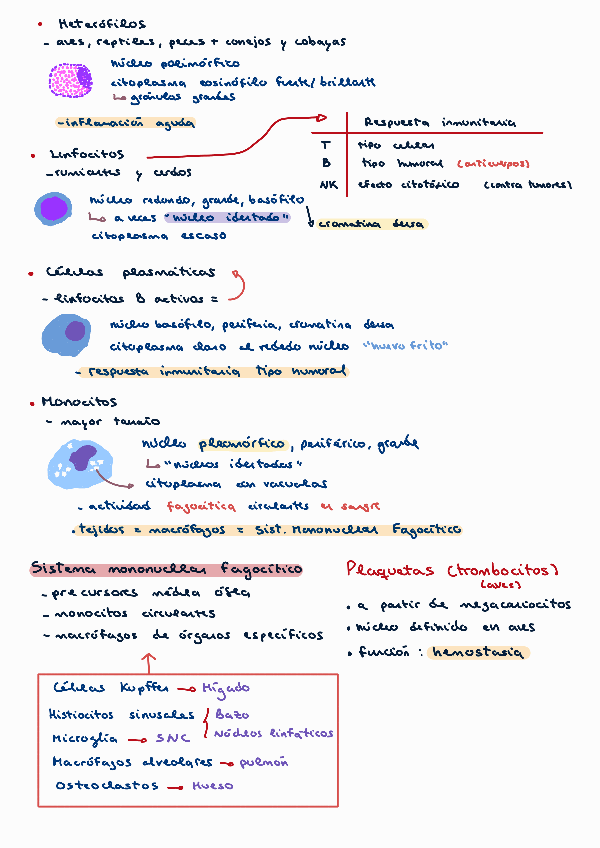 • Heterófilos
- aves, reptiles, peces + conejos y cobayas
núcleo polimórfico
citoplasma eosinófilo fuerte/brillante
↳ gránulos grandes
- inflamación aguda
Respuesta inmunitaria
T tipo celular
B tipo humoral (anticuerpos)
NK efecto citotóxico (contra tumores)
• Linfocitos
- rumiantes y cerdos
núcleo redondo, grande, basófilo
↳ a veces "núcleo identado"
cromatina densa
citoplasma escaso
• Células plasmáticas
- linfocitos B activos =
núcleo basófilo, periferia, cromatina densa
citoplasma claro al rededo núcleo "huevo frito"
- respuesta inmunitaria tipo humoral
• Monocitos
- mayor tamaño
núcleo pleomórfico, periférico, grande
↳ "núcleos identados"
citoplasma con vacuolas
- actividad fagocítica circulantes en sangre
• tejidos = macrófagos = Sist. Mononuclear Fagocítico
Sistema mononuclear fagocítico
- precursores médula ósea
- monocitos circulantes
- macrófagos de órganos específicos
Células Kupffer → Hígado
Histiocitos sinusales Bazo
Nódulos linfáticos
Microglía → SNC
Macrófagos alveolares → pulmón
Osteoclastos → Hueso
Plaquetas (trombocitos)
(aves)
• a partir de megacariocitos
• núcleo definido en aves
• función : hemostasia